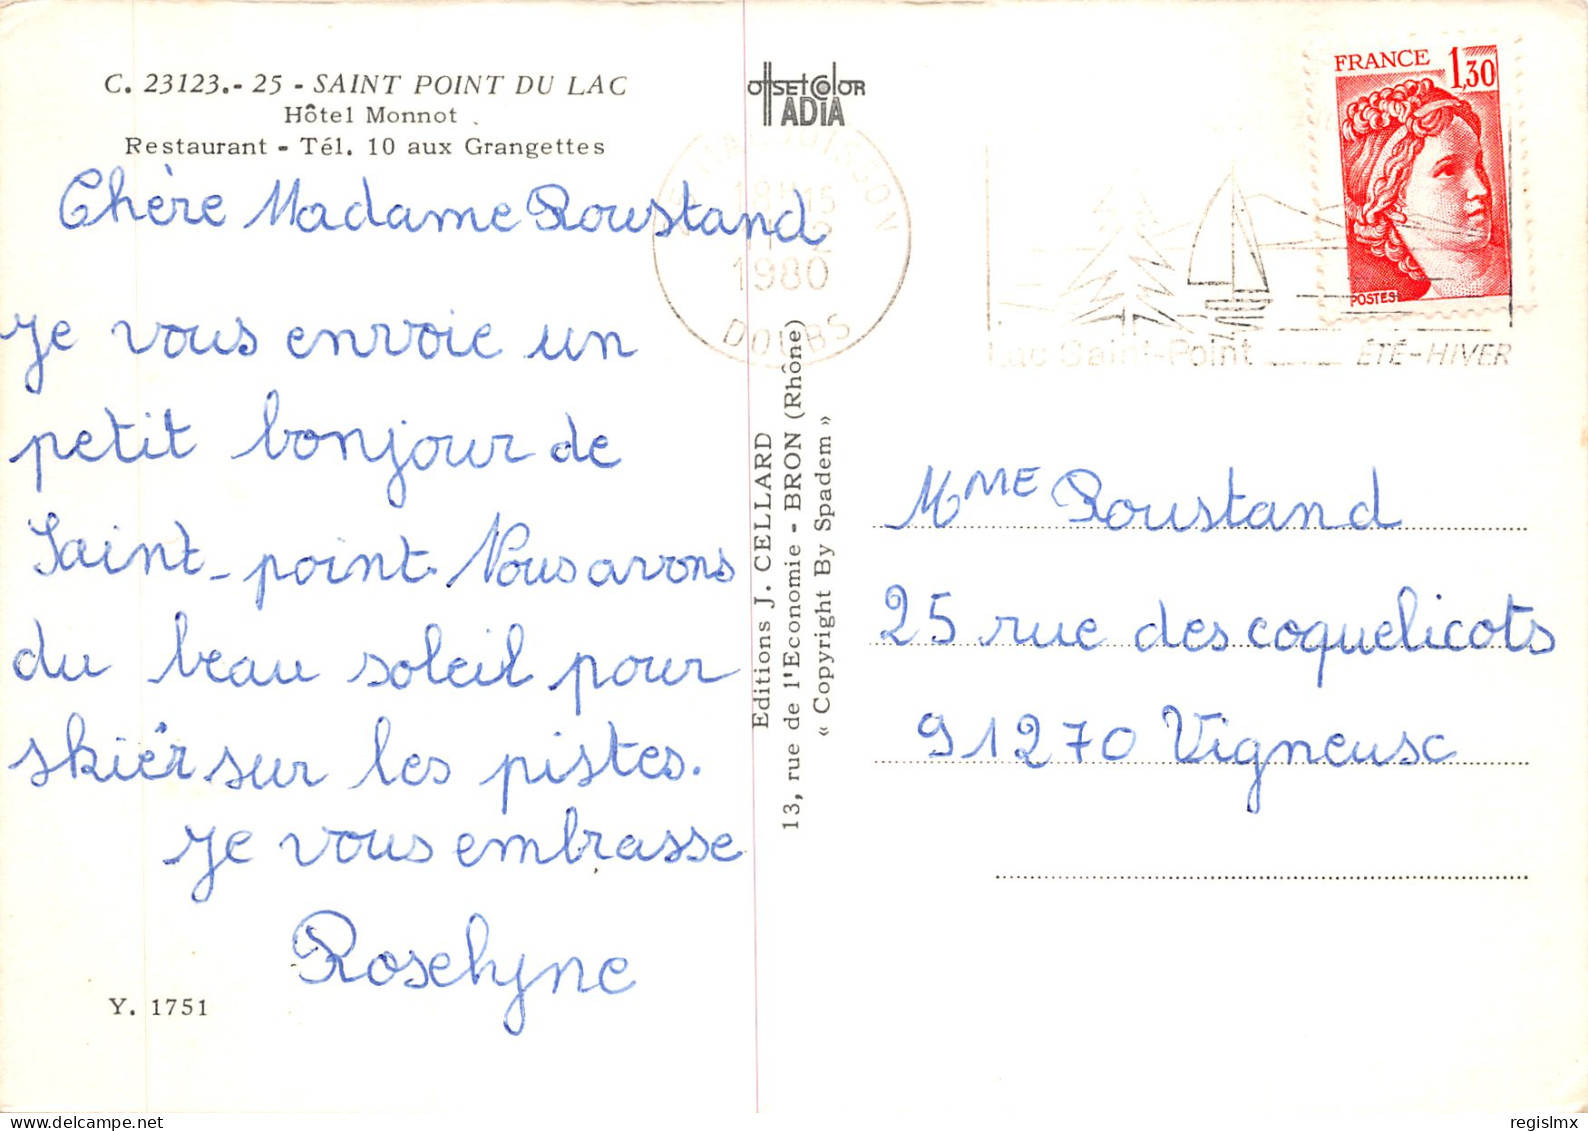 C. 23123.- 25 - SAINT POINT DU LAC
Hôtel Monnot
Restaurant - Tél. 10 aux Grangettes
Chère Madame Roustand
Je vous envoie un
petit bonjour de
Saint-point. Nous avons
du beau soleil pour
skier sur les pistes.
Je vous embrasse
Roselyne
Y. 1751
OffSETCOlOR
ADIA
Editions J. CELLARD
13, rue de l'Economie - BRON (Rhône)
« Copyright By Spadem »
18H15
1980
DOUBS
Lac Saint-Point
ÉTÉ-HIVER
FRANCE 1,30
POSTES
MME Roustand
25 rue des coquelicots
91270 Vigneux
regislmx